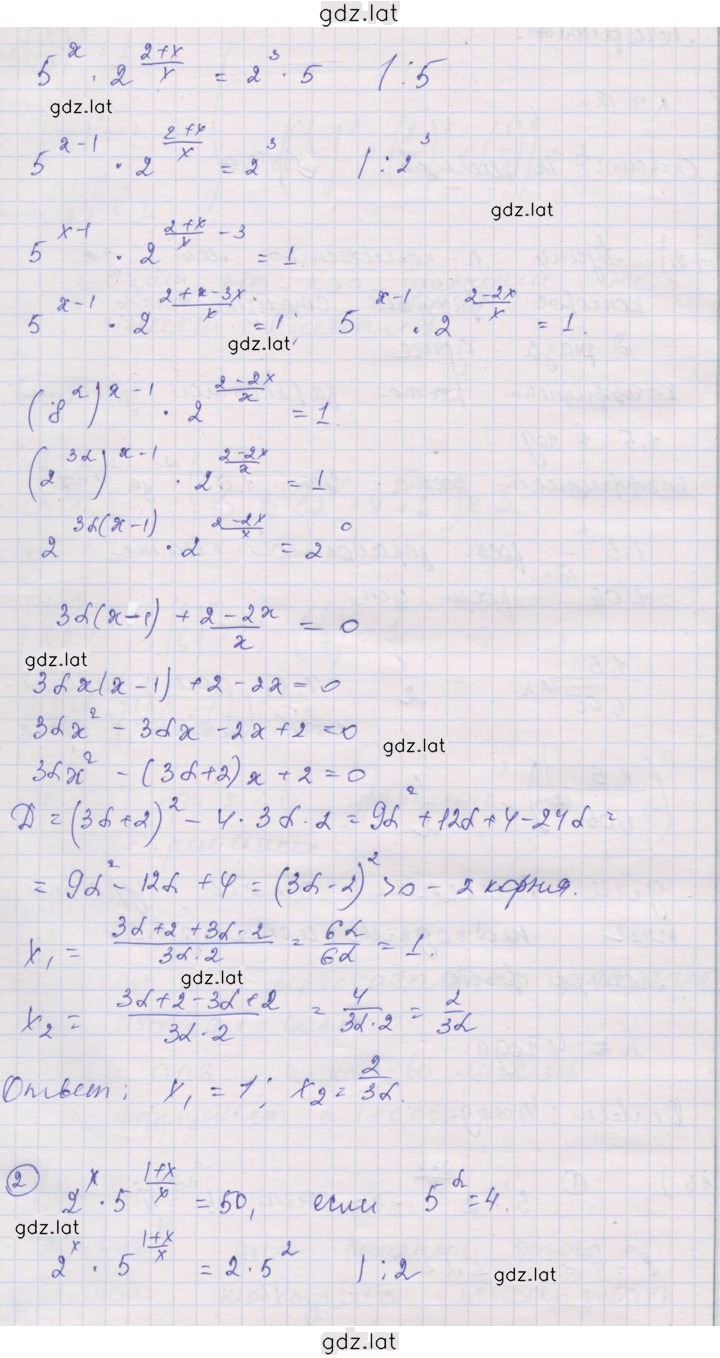 gdz.lat
5^x · 2^((2+x)/x) = 2^3 · 5 | :5
gdz.lat
5^(x-1) · 2^((2+x)/x) = 2^3 | :2^3
gdz.lat
5^(x-1) · 2^((2+x)/x - 3) = 1
5^(x-1) · 2^((2+x-3x)/x) = 1; 5^(x-1) · 2^((2-2x)/x) = 1.
gdz.lat
(8^α)^(x-1) · 2^((2-2x)/x) = 1.
(2^(3α))^(x-1) · 2^((2-2x)/x) = 1
2^(3α(x-1)) · 2^((2-2x)/x) = 2^0
3α(x-1) + (2-2x)/x = 0
gdz.lat
3αx(x-1) + 2 - 2x = 0
3αx^2 - 3αx - 2x + 2 = 0
gdz.lat
3αx^2 - (3α+2)x + 2 = 0
D = (3α+2)^2 - 4 · 3α · 2 = 9α^2 + 12α + 4 - 24α =
= 9α^2 - 12α + 4 = (3α-2)^2 > 0 - 2 корня.
x₁ = (3α+2+3α-2)/(3α·2) = 6α/6α = 1.
gdz.lat
x₂ = (3α+2-3α+2)/(3α·2) = 4/(3α·2) = 2/3α
Ответ: x₁ = 1; x₂ = 2/3α.
② 2^x · 5^((1+x)/x) = 50, если 5^α = 4.
gdz.lat
2^x · 5^((1+x)/x) = 2 · 5^2 | :2
gdz.lat
gdz.lat